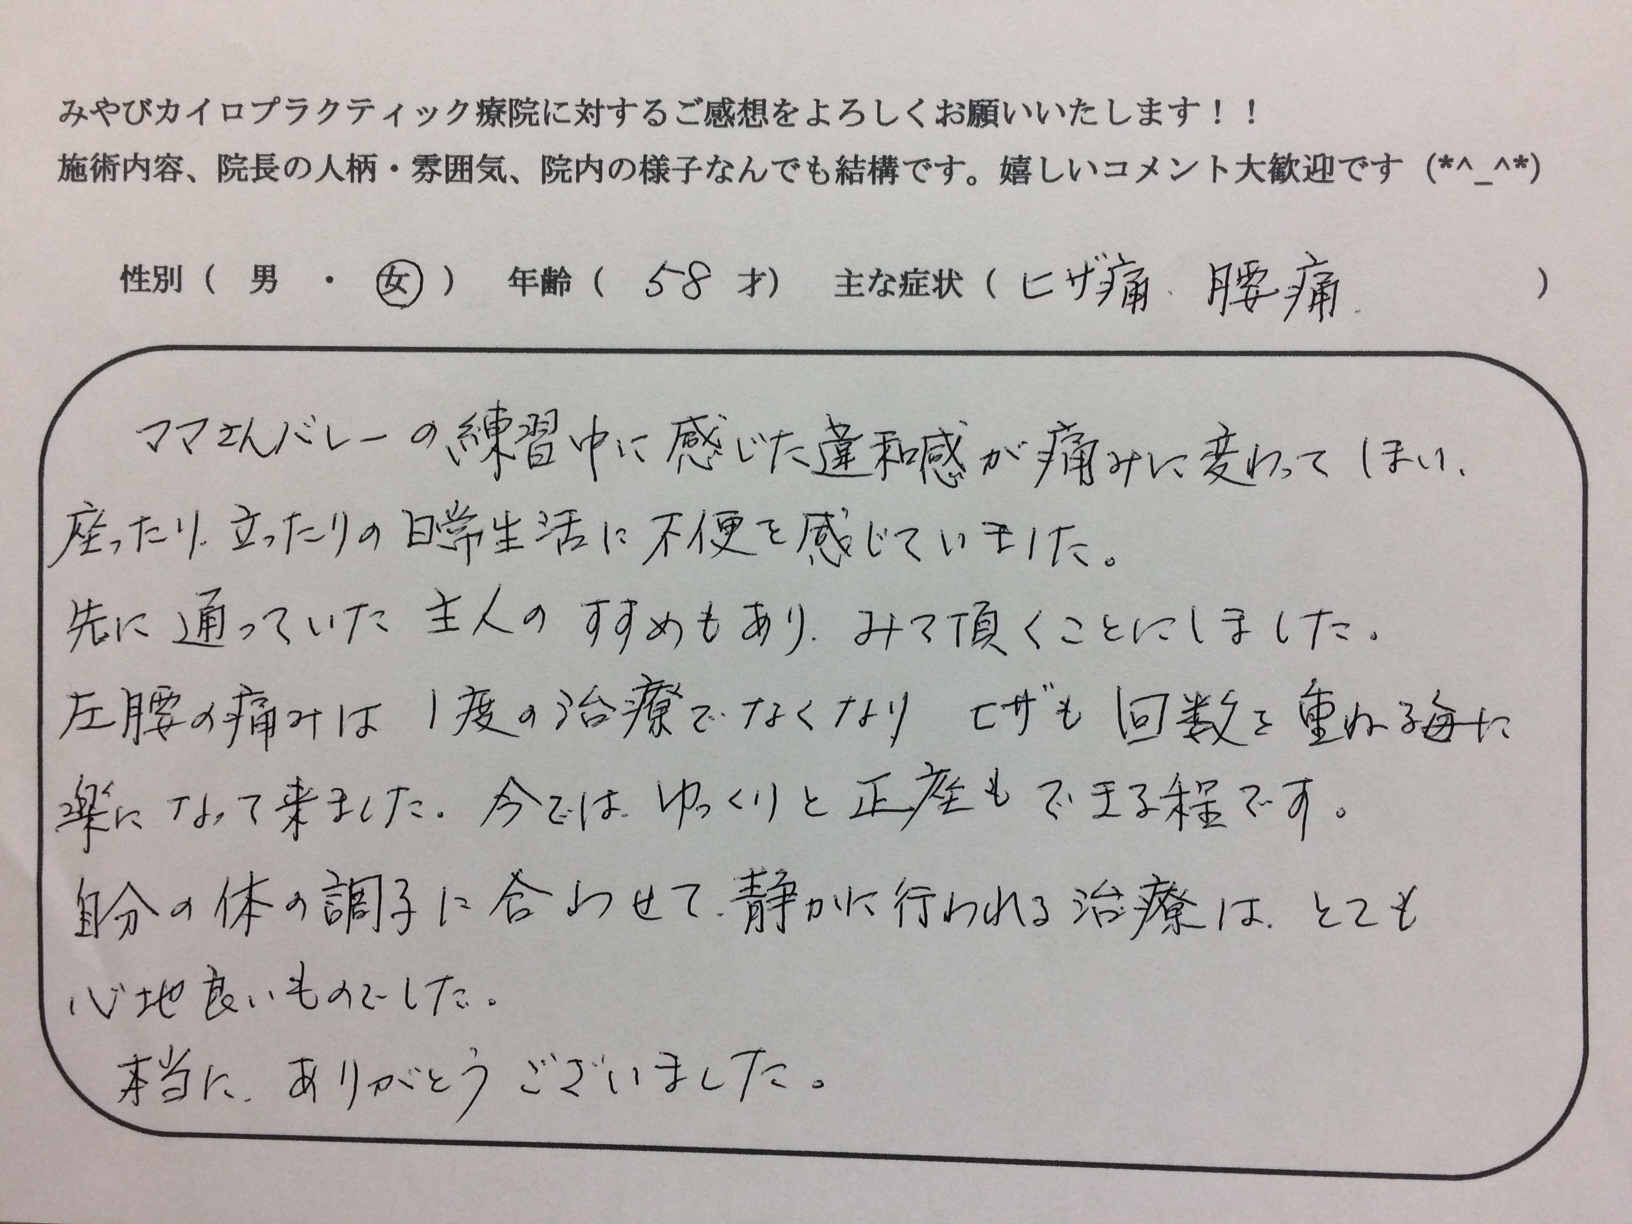 みやびカイロプラクティック療院に対するご感想をよろしくお願いいたします！！
施術内容、院長の人柄・雰囲気、院内の様子なんでも結構です。嬉しいコメント大歓迎です（*^_^*）
性別（ 男 ・ 女 ） 年齢（ 58 才） 主な症状（ ヒザ痛、腰痛 ）
ママさんバレーの練習中に感じた違和感が痛みに変わってしまい、
座ったり、立ったりの日常生活に不便を感じていました。
先に通っていた主人のすすめもあり、みて頂くことにしました。
左腰の痛みは1度の治療でなくなり ヒザも回数を重ねる毎に
楽になって来ました。今では、ゆっくりと正座もできる程です。
自分の体の調子に合わせて、静かに行われる治療は、とても
心地良いものでした。
本当に、ありがとうございました。